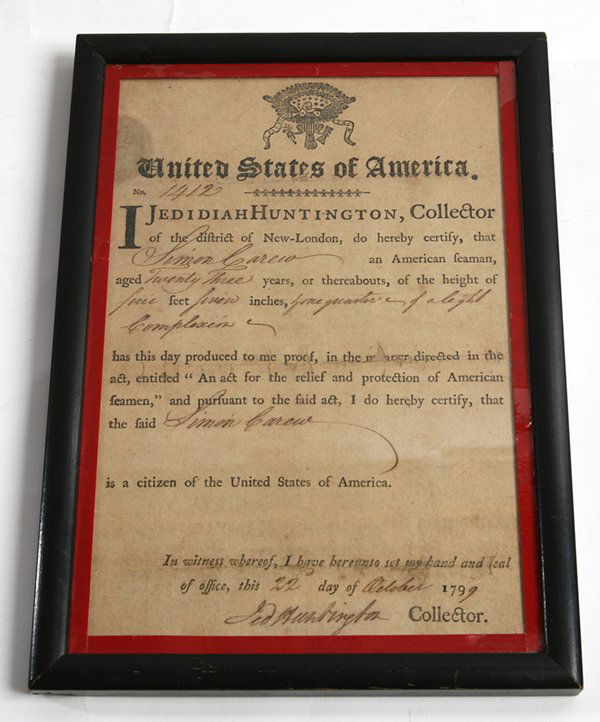 United States of America.
No. 1412
I JEDIDIAH HUNTINGTON, Collector
of the district of New-London, do hereby certify, that
Simon Carew an American seaman,
aged Twenty Three years, or thereabouts, of the height of
five feet seven inches, one quarter of a light
Complexion
has this day produced to me proof, in the manner directed in the
act, entitled “ An act for the relief and protection of American
seamen,” and pursuant to the said act, I do hereby certify, that
the said Simon Carew
is a citizen of the United States of America.
In witness whereof, I have hereunto set my hand and seal
of office, this 22d day of October 1799
Jed Huntington Collector.